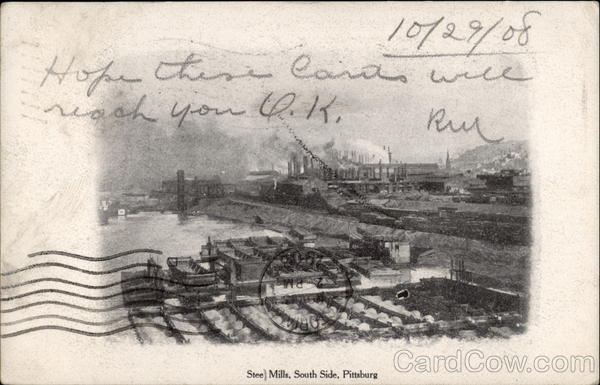 10/29/08
Hope these Cards will
reach you O.K.
Stee] Mills, South Side, Pittsburg
CardCow.com